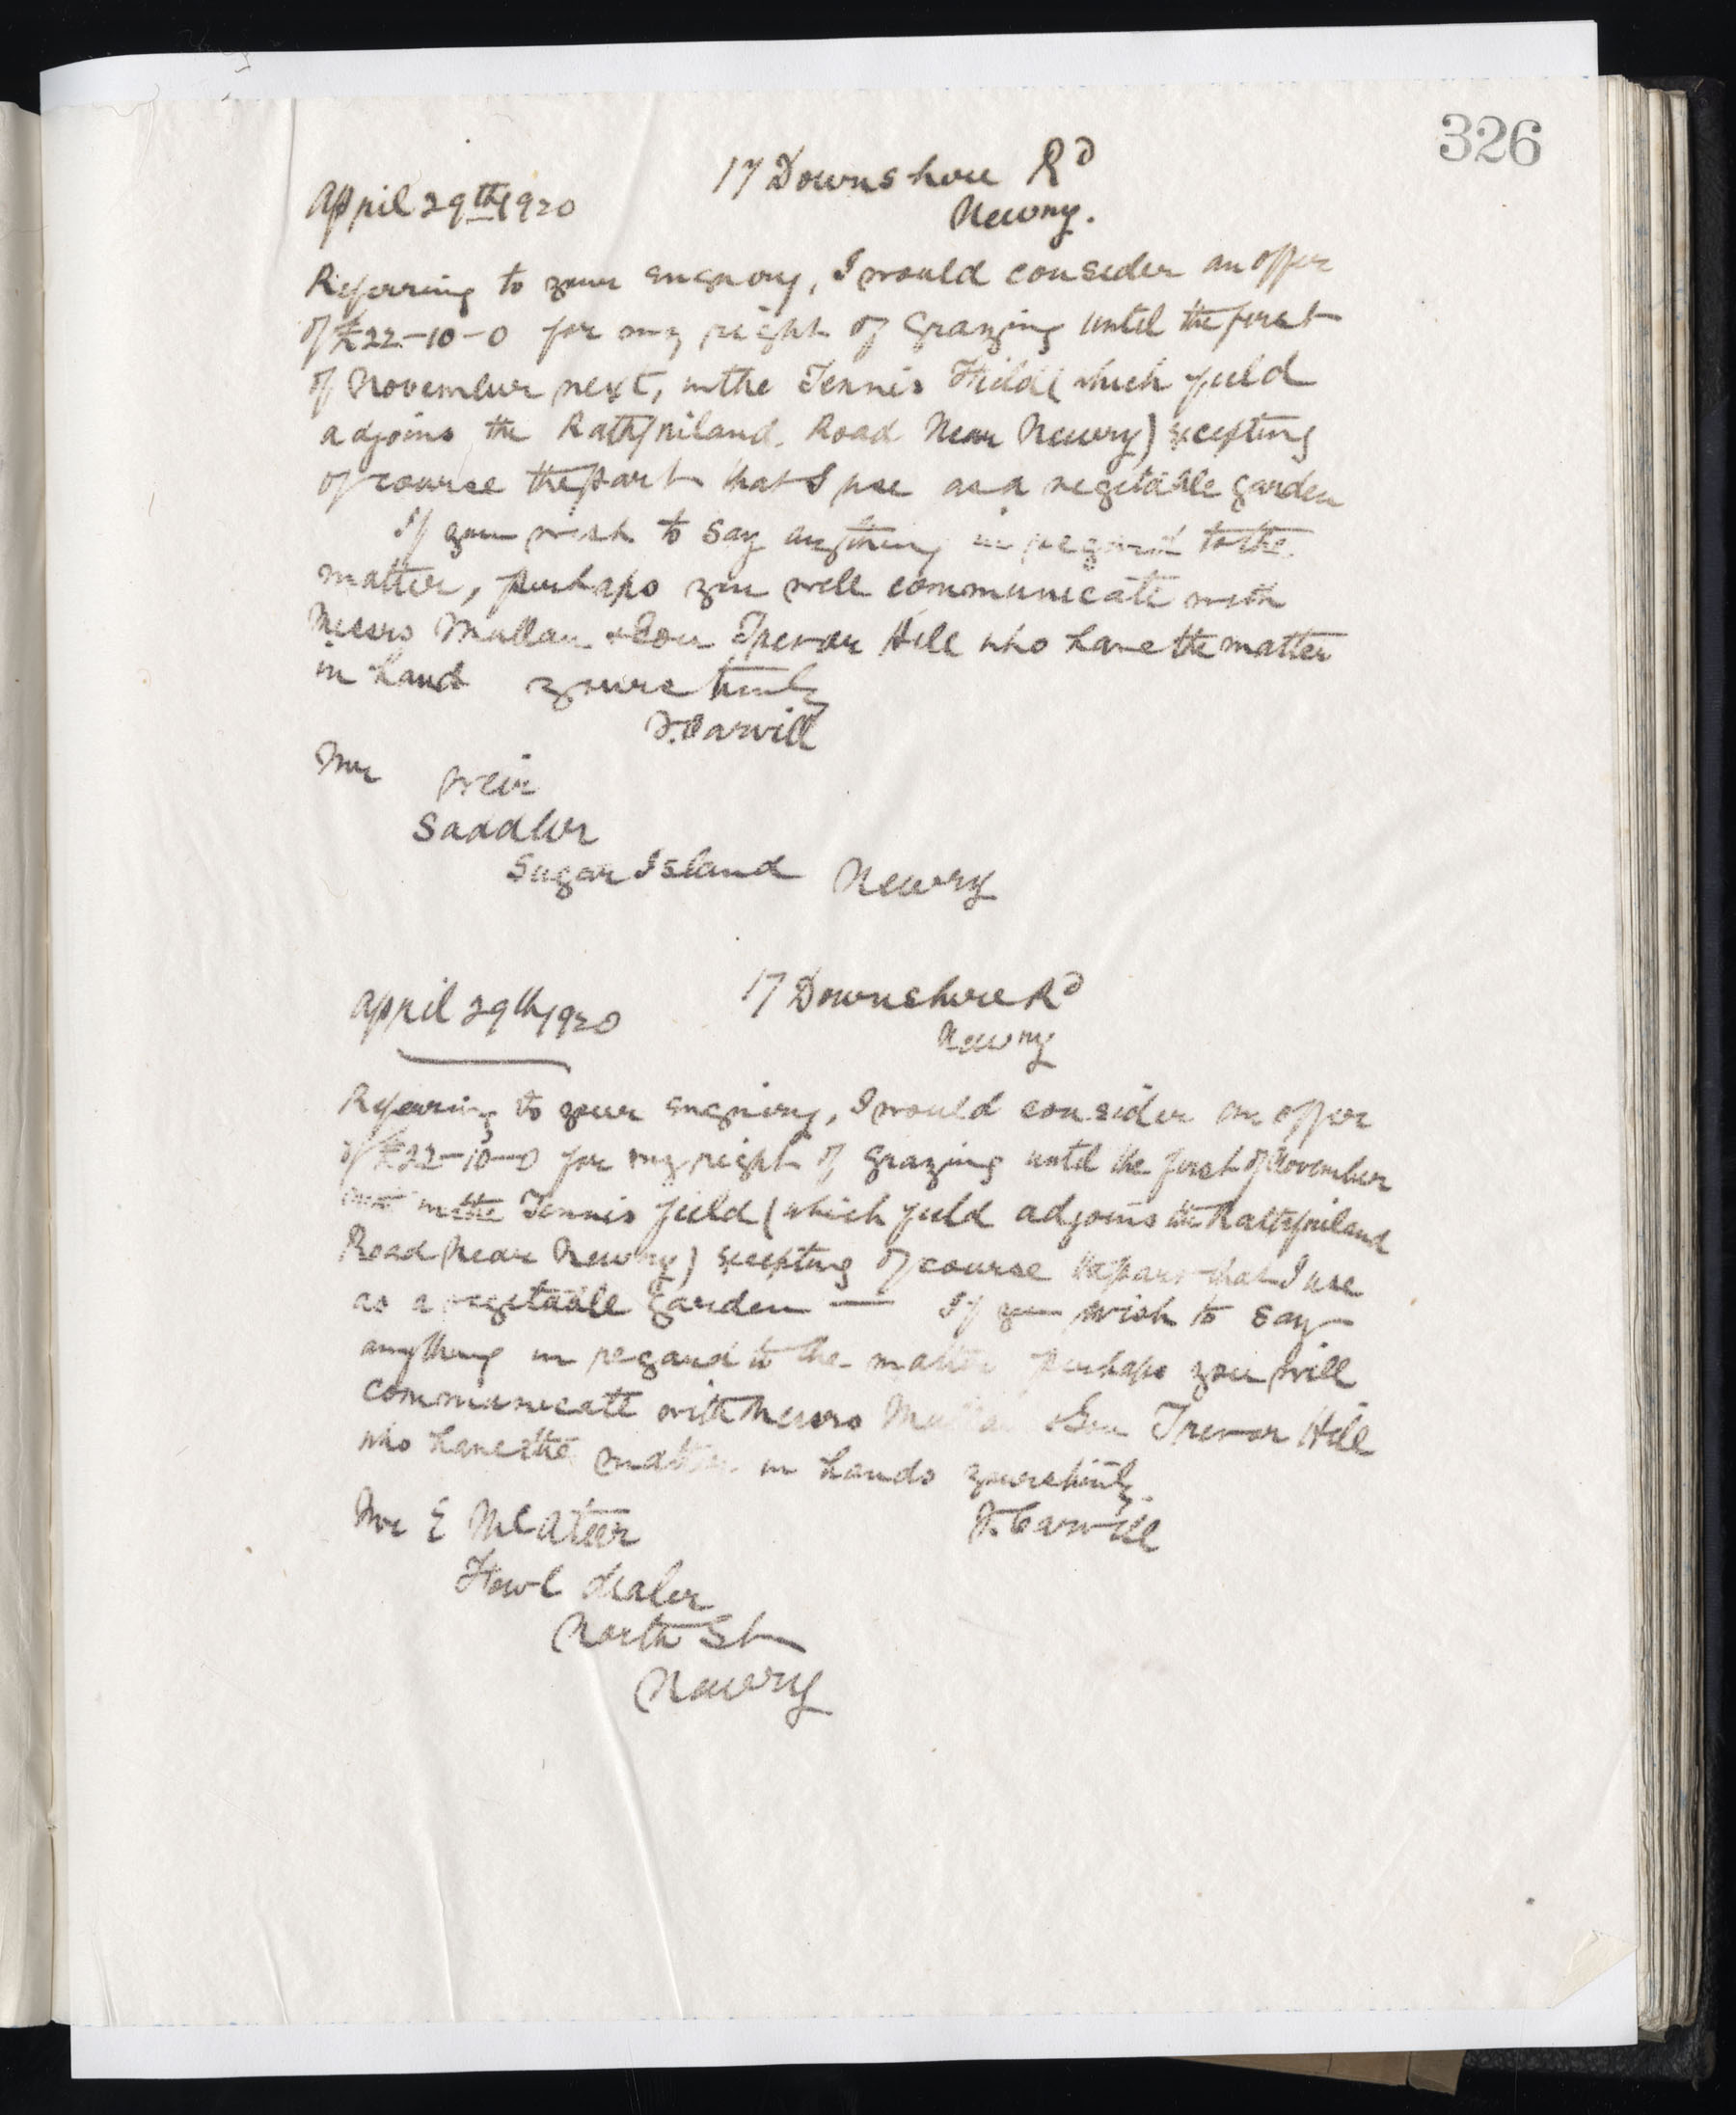 326
17 Downshire Rd
April 29th 1920
Newry.
Referring to your enquiry, I would consider an offer
of £22-10-0 for my right of Grazing until the first
of November next, in the Tennis Field (which field
adjoins the Rathfriland Road Near Newry) excepting
of course the part that I use as a vegetable garden
If you wish to say anything in regard to the
matter, perhaps you will communicate with
Messrs Mullan & Son Trevor Hill who have the matter
in hand yours truly
F. Carvill
Mr Weir
Saddler
Sugar Island Newry
17 Downshire Rd
April 29th 1920
Newry
Referring to your enquiry, I would consider an offer
of £22-10-0 for my right of Grazing until the first of November
next in the Tennis field (which field adjoins the Rathfriland
Road Near Newry) excepting of course the part that I use
as a vegetable garden — If you wish to say
anything in regard to the matter perhaps you will
communicate with Messrs Mullan & Son Trevor Hill
who have the matter in hands yours truly
F. Carvill
Mr E McAteer
Fowl dealer
North St
Newry